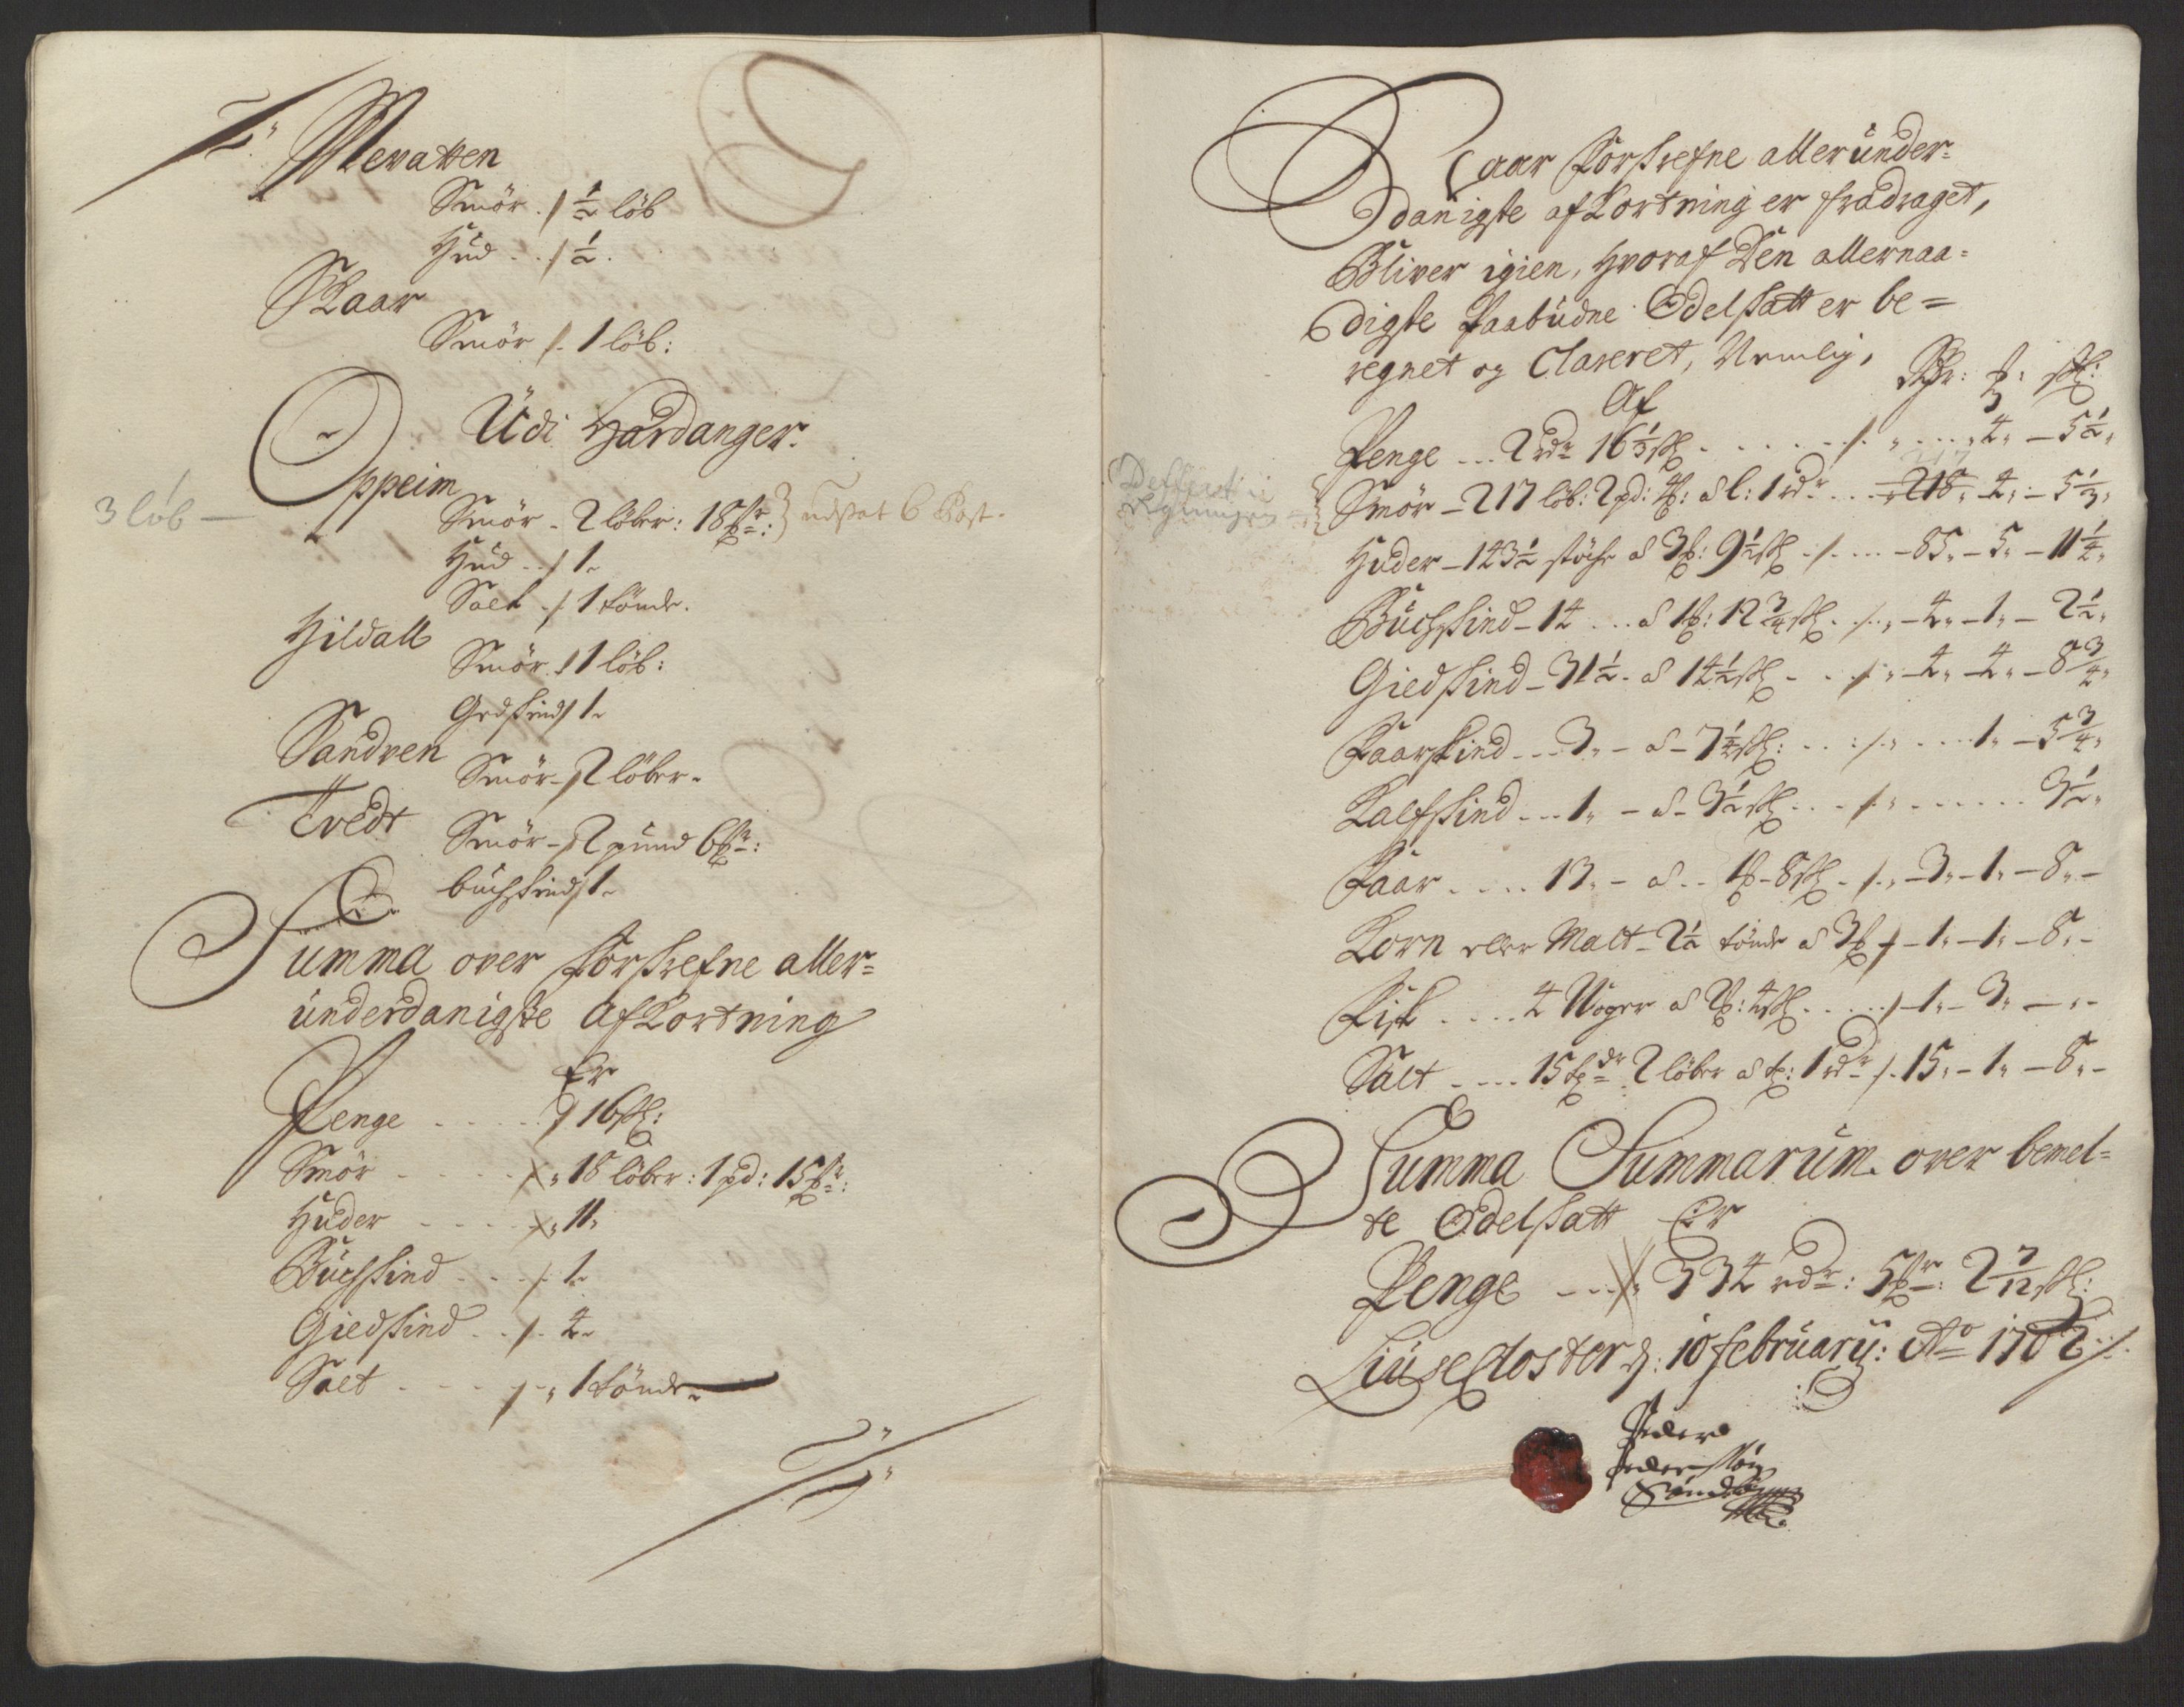 Mevatten
Smör ./ 1/2 löb
Hud ../ 1/2.
Skaar
Smör /. 1 löb:
Udi Hardanger.
Oppeim
3 löb —
Smör - 2 löber: 18 mkr: udsat 6 Post.
Hud ../ 1.
Salt ./ 1 tönde.
Hildall
Smör ./ 1 löb:
Gedskind / 1.
Sandven
Smör - / 2 löber.
Tredt
Smör - / 2 pund 6 mkr:
buchskind / 1.
Summa over forskrefne aller=
underdanigste afkortning
Er
Penge ..... / 16 sk:
Smör ..... /. 18 löber: 1 pd: 15 mkr:
Huder .... /. 11.
Buchskind ... /. 1.
Giedskind .. /. 4.
Salt .... /. 1 tönde.
Naar forskrefne allerunder=
danigste afkortning er fradraget,
Bliver igien, hvoraf Den allernaa=
digste Paabudne Odelskatt er be=
regnet og Clareret, Nemlig,
Af
Rdr: mk: sk:
Penge ... 2 rdr 16 1/3 sk ...... /. „ .... 4. — 5 1/2.
Smör — 217 löb: 2 pd: 4 mk: a l: 1 rdr .... 218. 4. — 5 1/3.
Huder — 143 1/2 støche a 3 mk: 9 1/2 sk ./. ... — 85. — 5. — 11 1/4.
Buchskind — 14 ... a 1 mk: 12 3/4 sk ../. — 4. — 1. — 2 1/2.
Giedskind — 31 1/2 . a 14 1/2 sk .. /. — 4. — 4. — 8 3/4.
Faarskind ... 3. — a — 7 1/4 sk: ... /. .... 1. — 5 3/4.
Kalfskind ... 1. — a — 3 1/2 sk ... /. ....... 3 1/2.
Faar .... 13. — a .. 1 mk — 8 sk ./. — 3. — 1. — 8. —
Korn eller Malt — 2 1/2 tönde a 3 mk / — 1. — 1. — 8. —
Fisk .... 4 Woger a 2 mk: 4 sk ..... / — 1. — 3. —
Salt .... 15 tdr 2 löber a t: 1 rdr /. 15. — 1. — 8. —
Summa Summarum over bemel=
te Odelskatt Er
Penge ... /. 334 rdr: 5 mkr: 2 7/12 sk:
Liuse Closter d: 10 february: Ao 1702 /.
Peder